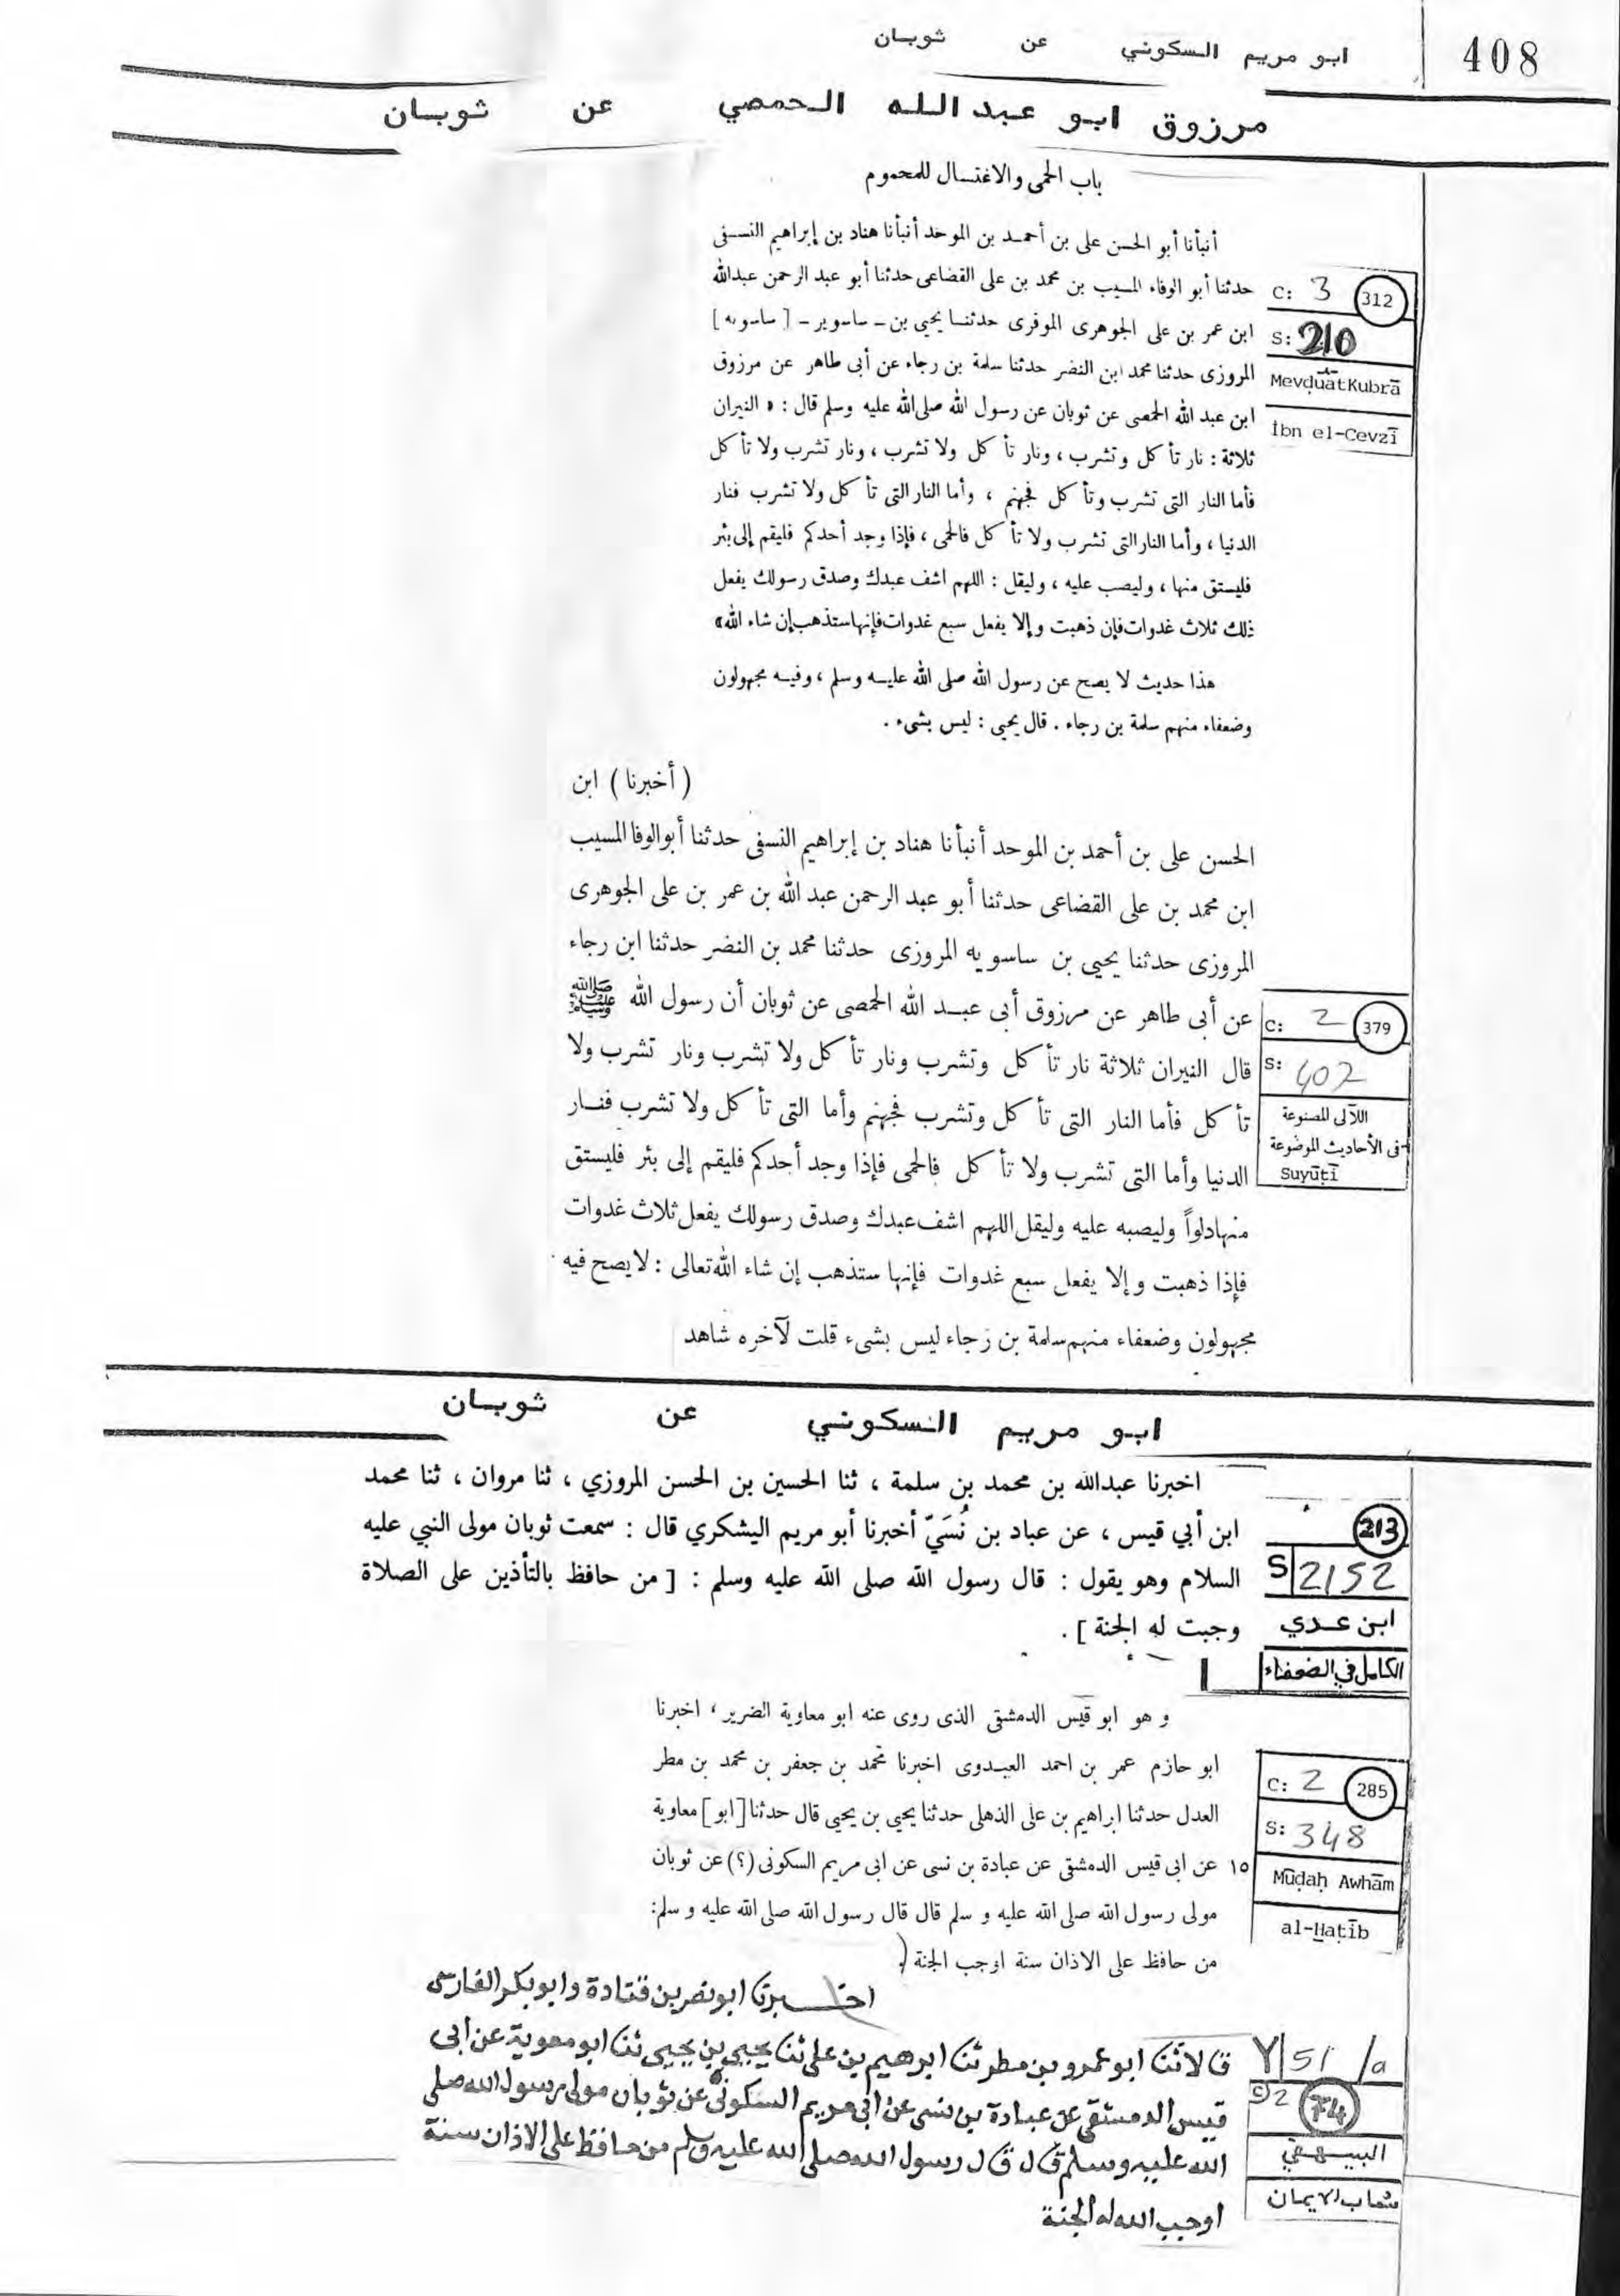 408
ابو مريم السكوني عن ثوبان
مرزوق ابو عبد الله الحمصي عن ثوبان
باب الحمى والاغتسال للمحموم
أنبأنا أبو الحسن على بن أحمد بن الموحد أنبأنا هناد بن إبراهيم النسفى
حدثنا أبو الوفاء المسيب بن محمد بن على القضاعى حدثنا أبو عبد الرحمن عبدالله
ابن عمر بن على الجوهرى الموفرى حدثنا يحيى بن ـ ساسوير ـ [ ساسويه ]
المروزى حدثنا محمد ابن النضر حدثنا سلمة بن رجاء عن أبى طاهر عن مرزوق
ابن عبد الله الحمصى عن ثوبان عن رسول الله صلى الله عليه وسلم قال : « النيران
ثلاثة : نار تأكل وتشرب ، ونار تأكل ولا تشرب ، ونار تشرب ولا تأكل
فأما النار التى تشرب وتأكل فجهنم ، وأما النار التى تأكل ولا تشرب فنار
الدنيا ، وأما النار التى تشرب ولا تأكل فالحمى ، فإذا وجد أحدكم فليقم إلى بئر
فليستق منها ، وليصب عليه ، وليقل : اللهم اشف عبدك وصدق رسولك يفعل
ذلك ثلاث غدوات فإن ذهبت وإلا يفعل سبع غدوات فإنها ستذهب إن شاء الله »
هذا حديث لا يصح عن رسول الله صلى الله عليه وسلم ، وفيه مجهولون
وضعفاء منهم سلمة بن رجاء . قال يحيى : ليس بشىء .
C: 3 312
S: 210
Mevḍuāt Kubrā
İbn el-Cevzī
( أخبرنا ) ابن
الحسن على بن أحمد بن الموحد أنبأنا هناد بن إبراهيم النسفى حدثنا أبو الوفا المسيب
ابن محمد بن على القضاعى حدثنا أبو عبد الرحمن عبد الله بن عمر بن على الجوهرى
المروزى حدثنا يحيى بن ساسويه المروزى حدثنا محمد بن النضر حدثنا ابن رجاء
عن أبى طاهر عن مرزوق أبى عبد الله الحمصى عن ثوبان أن رسول الله ﷺ
قال النيران ثلاثة نار تأكل وتشرب ونار تأكل ولا تشرب ونار تشرب ولا
تأكل فأما النار التى تأكل وتشرب فجهنم وأما التى تأكل ولا تشرب فنار
الدنيا وأما التى تشرب ولا تأكل فالحمى فإذا وجد أحدكم فليقم إلى بئر فليستق
منها دلواً وليصبه عليه وليقل اللهم اشف عبدك وصدق رسولك يفعل ثلاث غدوات
فإذا ذهبت وإلا يفعل سبع غدوات فإنها ستذهب إن شاء الله تعالى : لا يصح فيه
مجهولون وضعفاء منهم سلمة بن رجاء ليس بشىء قلت لآخره شاهد
C: 2 379
S: 407
اللآلى المصنوعة
فى الأحاديث الموضوعة
Suyūṭī
ابو مريم السكوني عن ثوبان
اخبرنا عبدالله بن محمد بن سلمة ، ثنا الحسين بن الحسن المروزي ، ثنا مروان ، ثنا محمد
ابن أبي قيس ، عن عباد بن نُسَيّ أخبرنا أبو مريم اليشكري قال : سمعت ثوبان مولى النبي عليه
السلام وهو يقول : قال رسول الله صلى الله عليه وسلم : [ من حافظ بالتأذين على الصلاة
وجبت له الجنة ] .
213
S 2152
ابن عدي
الكامل في الضعفاء
و هو ابو قيس الدمشقى الذى روى عنه ابو معاوية الضرير ، اخبرنا
ابو حازم عمر بن احمد العبدوى اخبرنا محمد بن جعفر بن محمد بن مطر
العدل حدثنا ابراهيم بن على الذهلى حدثنا يحيى بن يحيى قال حدثنا [ابو] معاوية
١٥ عن ابى قيس الدمشقى عن عبادة بن نسى عن ابى مريم السكونى (؟) عن ثوبان
مولى رسول الله صلى الله عليه و سلم قال قال رسول الله صلى الله عليه و سلم:
من حافظ على الاذان سنة اوجب الجنة .
C: 2 285
S: 348
Mūḍaḥ Awhām
al-Ḫaṭīb
اخبرنا ابو نصر بن قتادة وابو بكر الفارسى
قالا ثنا ابو عمرو بن مطر ثنا ابرهيم بن على ثنا يحيى بن يحيى ثنا ابو معوية عن أبى
قيس الدمشقى عن عبادة بن نسى عن ابى مريم السكونى عن ثوبان مولى رسول الله صلى
الله عليه وسلم قال قال رسول الله صلى الله عليه وسلم من حافظ على الاذان سنة
اوجب الله له الجنة
Y 51/a
C 2
البيهقي
شعاب الايمان